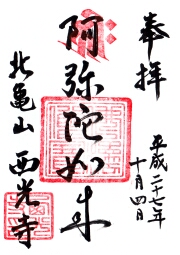 奉拝
平成二十七年
十月四日
阿弥陀如来
北亀山 西光寺